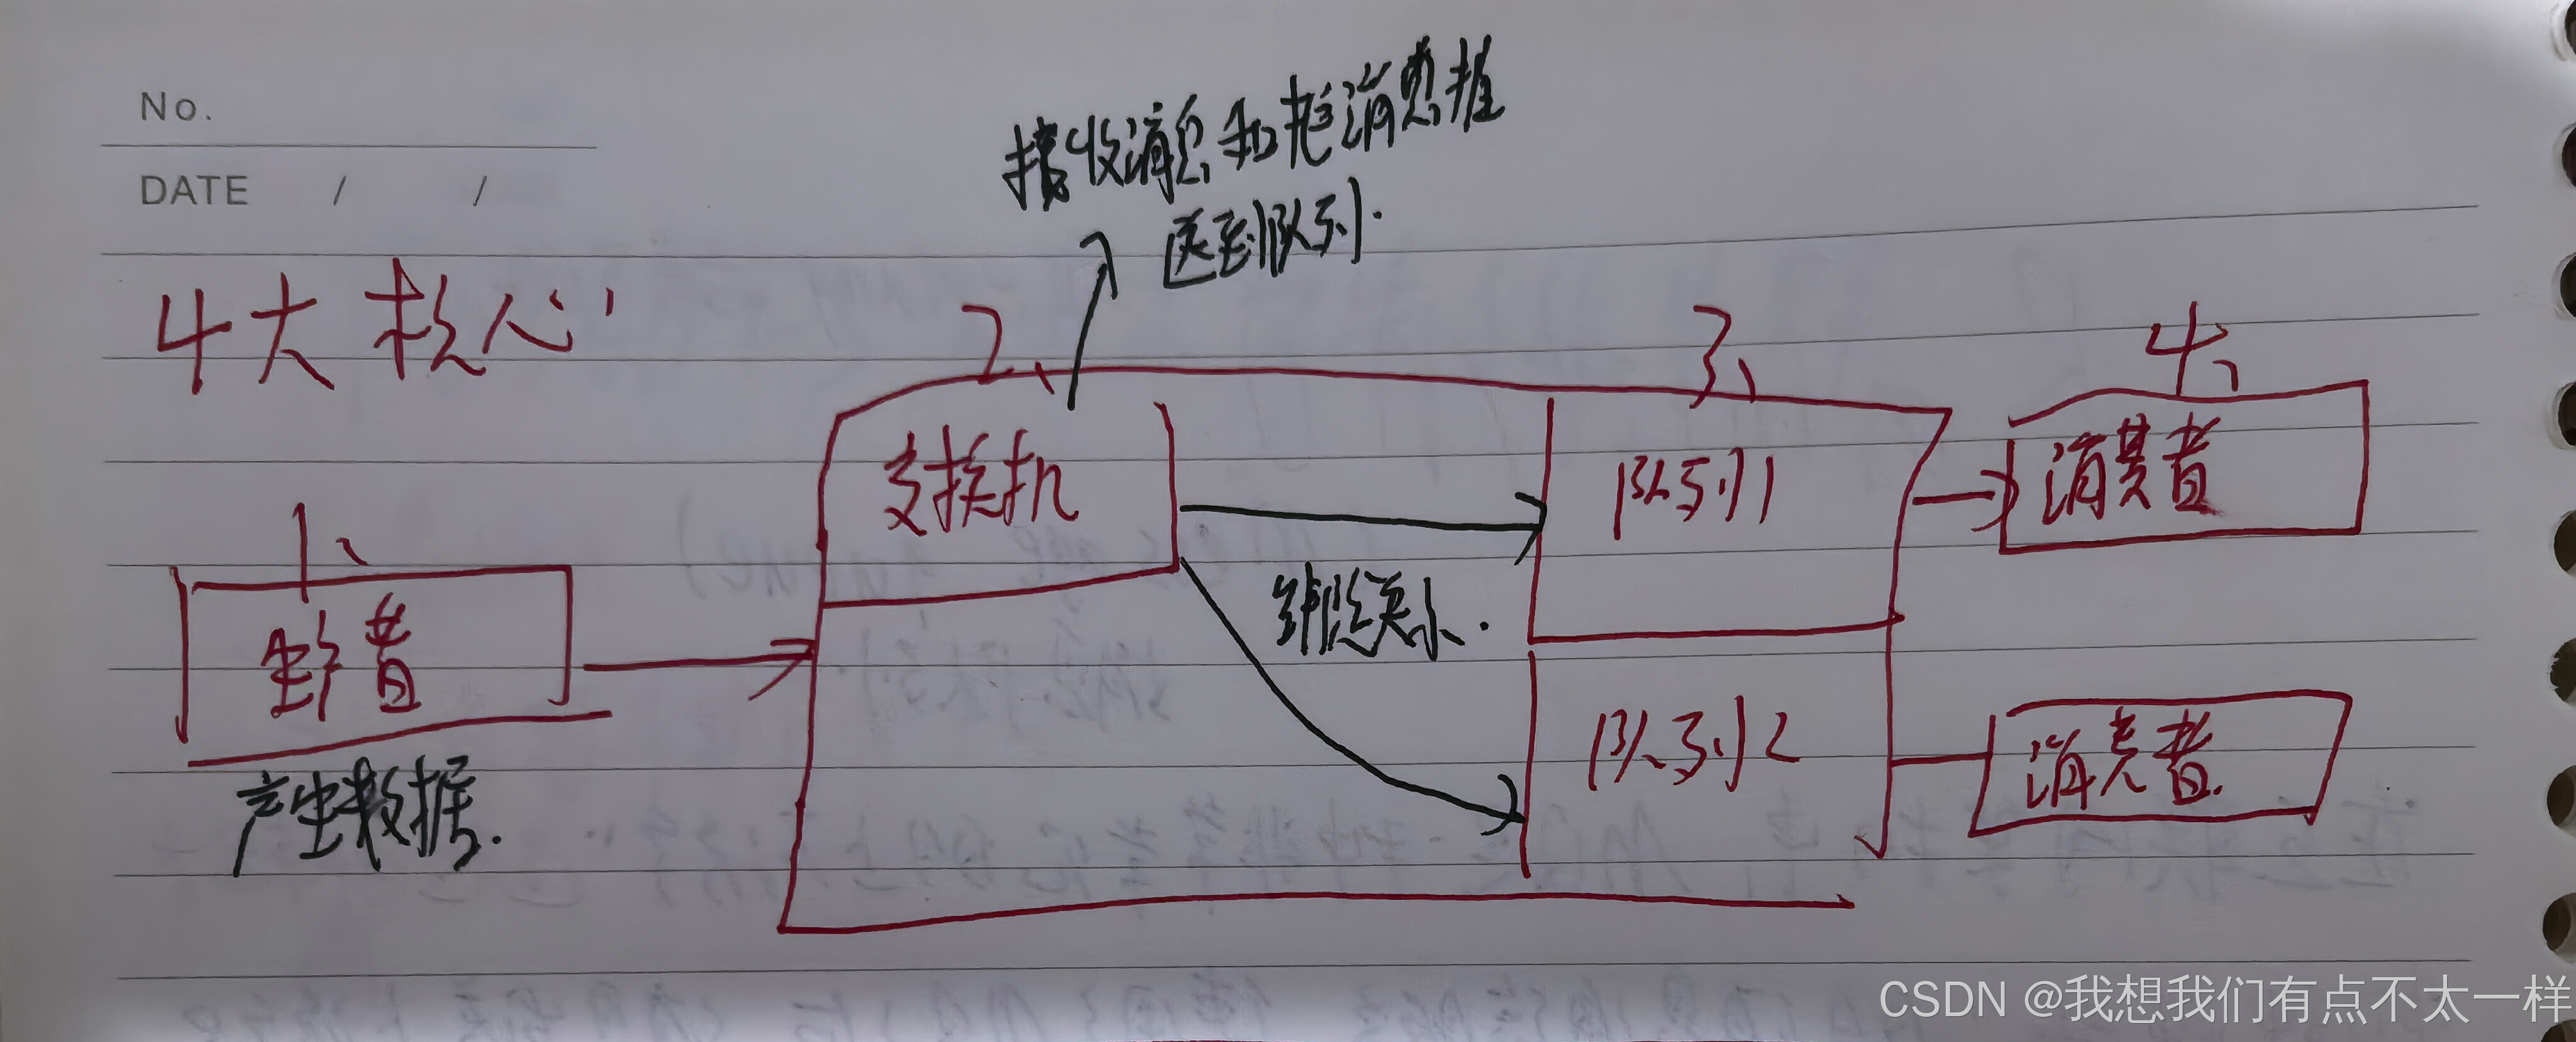 No.
DATE / /
接收消息和把消息推
送到队列.
4大核心
2、
3、
4、
交换机
队列1
消费者
1、
生产者
绑定关系.
产生数据.
队列2
消费者.
CSDN @我想我们有点不太一样